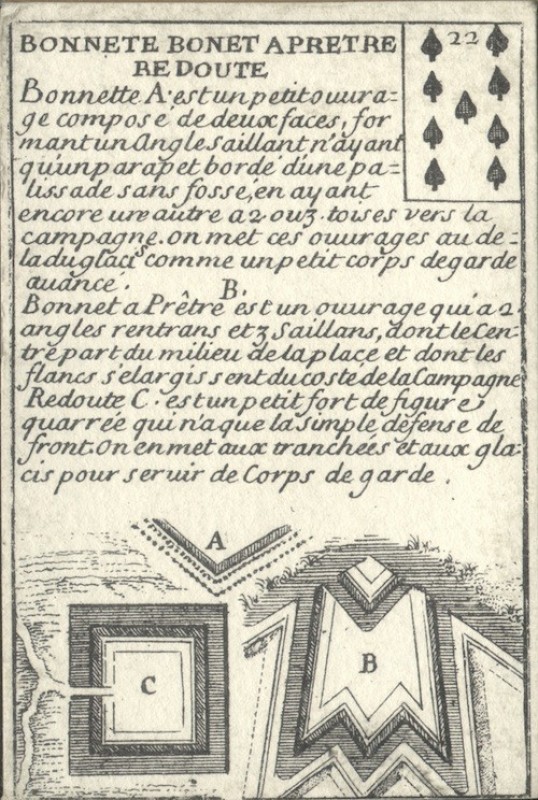 BONNETE BONET A PRETRE
REDOUTE
22
Bonnette A. est un petit ouura=
ge compose de deux faces, for
mant un Angle saillant n'ayant
qu'un parapet bordé d'une pa=
lissade sans fossé, en ayant
encore une autre a 2 ou 3. toises vers la
campagne. on met ces ouurages au de=
la du glacis comme un petit corps de garde
auancé.
B.
Bonnet a Prêtre est un ouurage qui a 2
angles rentrans et 3 Saillans, dont le Cen=
tre part du milieu de la place et dont les
flancs s'elargissent du costé de la Campagne
Redoute C. est un petit fort de figure
quarrée qui n'a que la simple défense de
front. On en met aux tranchées et aux gla=
cis pour seruir de Corps de garde.
A
B
C